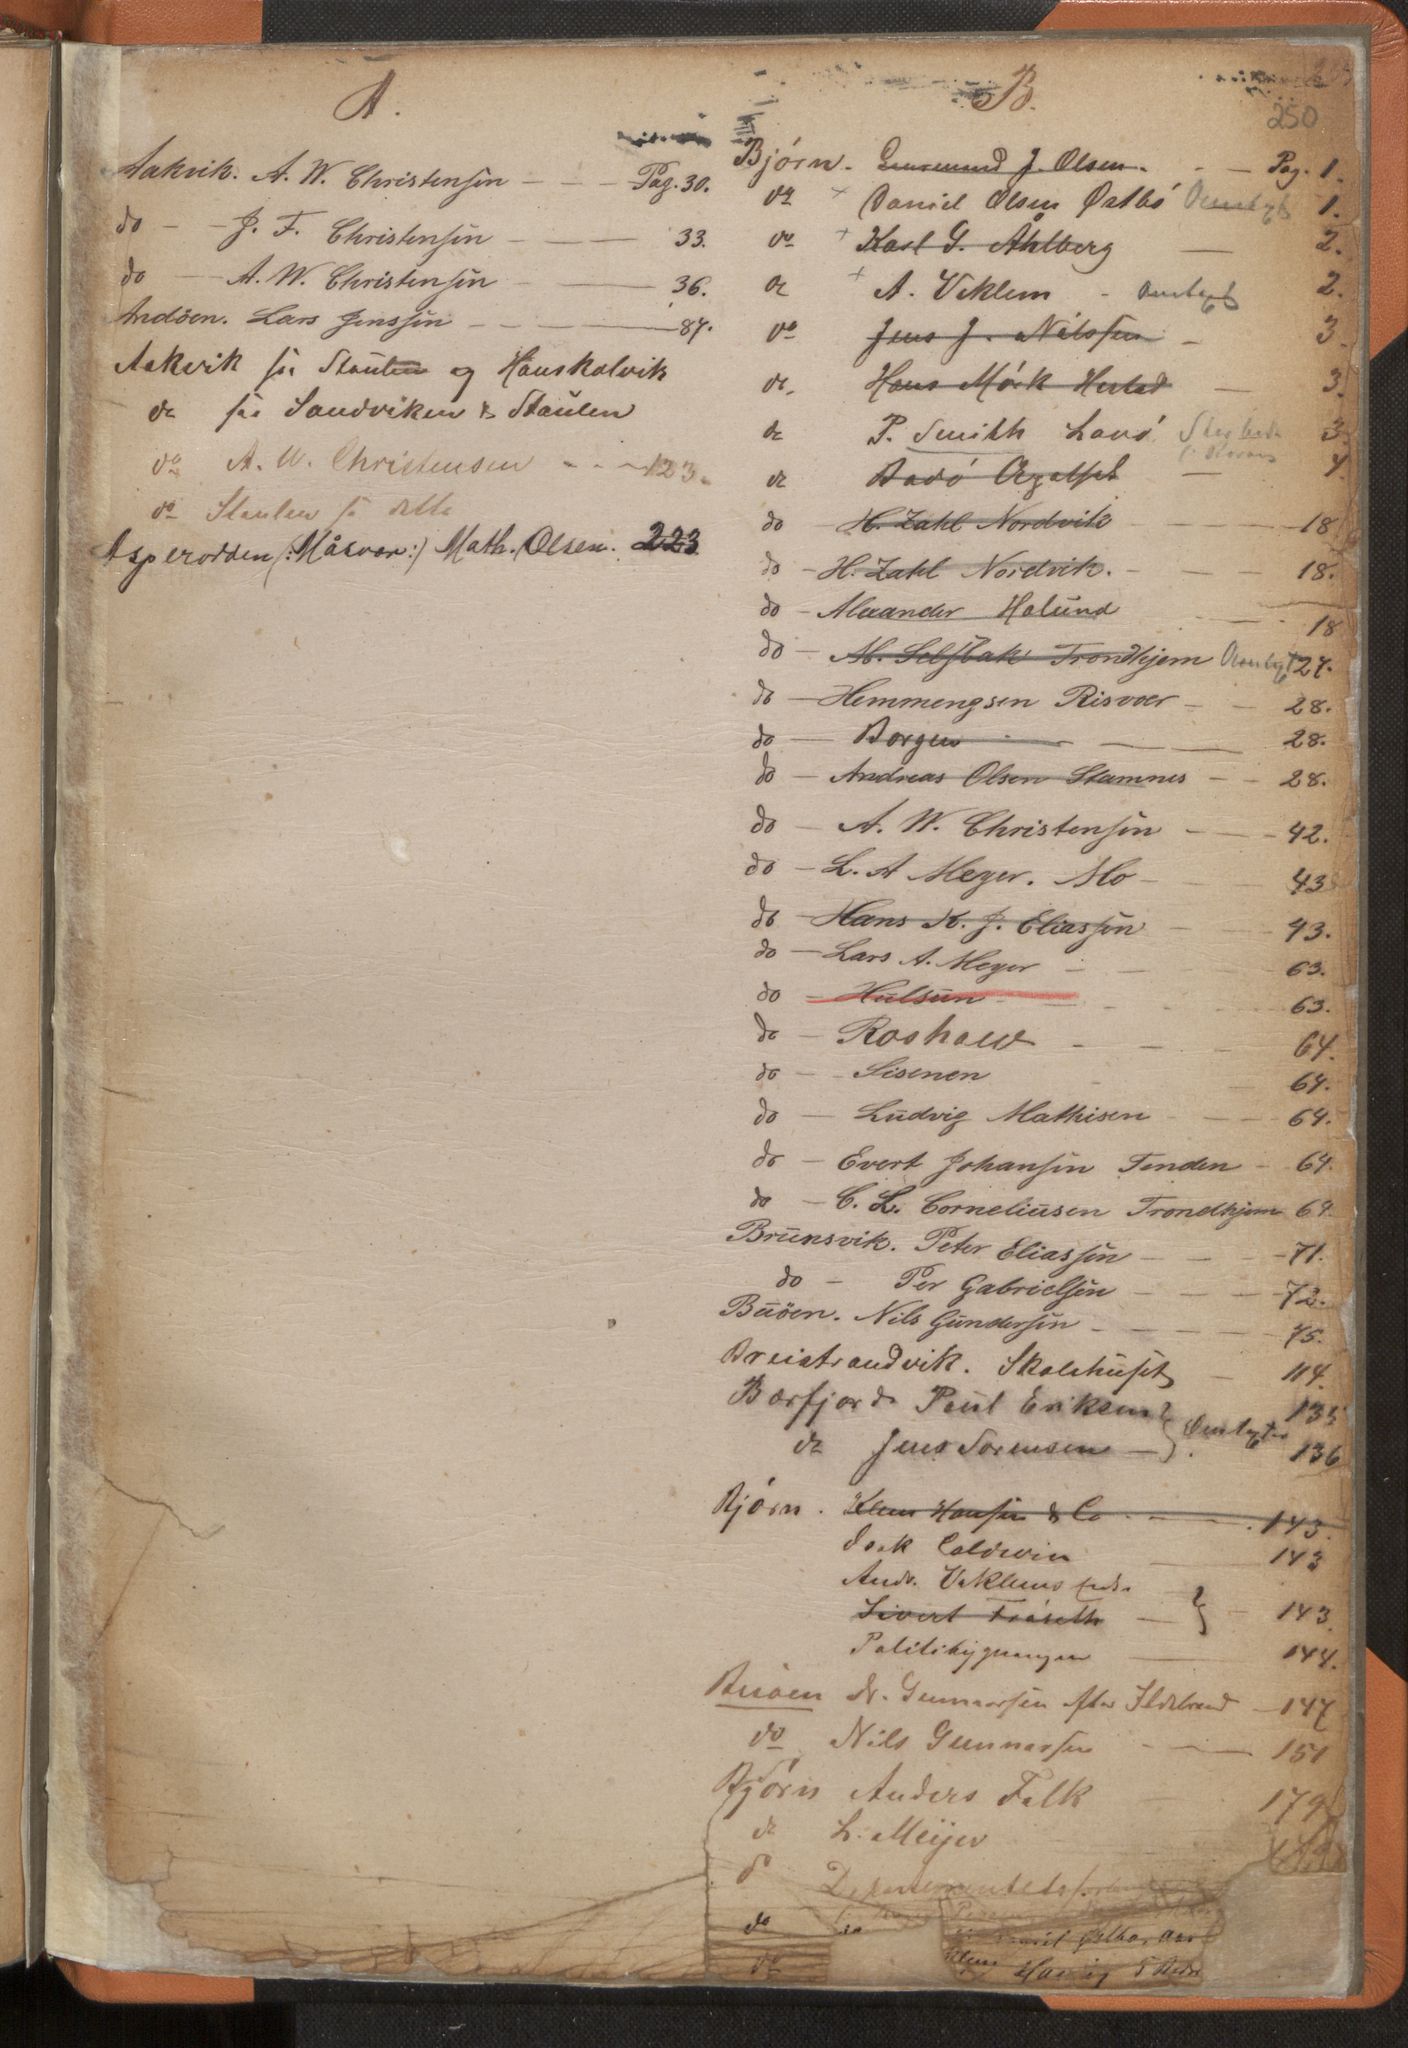 A.
Aakvik. A. W. Christensen - - - Pag. 30.
do - - J. F. Christensen - - - 33.
do - A. W. Christensen - - 36.
Andöen. Lars Jenssen - - - 87.
Aakvik se Stoulen og Hauskalvik
do se Sandviken & Staulen
do A. W. Christensen - - - 123.
do Staulen se dette
Asperodden (: Måsvær :) Math. Olsen. 223.
B.
250
Bjórn. J. Olsen. - Pag. 1.
do + Daniel Olsen Østbó Ombygt 1.
do + Karl G. Åhlberg - 2.
do + A. Veklem - Ombygt 2.
do Jens J. Nilssen - 3.
do. Hans Mörk Herstad - 3.
do P. Smith Lovö 3
do Bodó - 4.
do - H. Zahl Nordvik - - - 18
do - H. Zahl Nordvik. - - - 18.
do - Alexander Holund - - 18
do - M. Selsbak Trondhjem Ombygt 27.
do - Hemmengsen Risvær - - 28.
do - Borgen - - - 28.
do - Andreas Olsen Stamnes - - 28.
do - A. W. Christensen - - - 42.
do - L. A Meyer. Mo - - - 43
do - Hans K. J. Eliassen - - 43.
do - Lars A. Meyer - - - 63.
do - Hulsun - - - 63.
do - Roshauw - - - 64.
do - - Sisenen - - 64.
do - Ludvig Mathisen - - - 64.
do - Evert Johansen Tenden - 64.
do - C. L. Corneliusen Trondhjem 64.
Brunsvik. Peter Eliassen - - - 71.
do - Per Gabrielsen - - - 72.
Buöen. Nils Gundersen - - - 75.
Breistrandvik. Skolehuset - 114.
Bærfjord Poul Eriksen } Ombygt 135
do Jens Sorensen - } 136
Bjórn. Klaus Hansen & Co - - - 143.
Isak Caldevin - 143
Andr. Veklems
Sivert Fröseth - } - 143.
Politibygningen - 144.
Buöen N. Gunnarsen efter Ildebrand - 147
do Nils Gunnarsen - - 151
Bjórn Anders Falk - 179
do L. Meijer
do
do
do